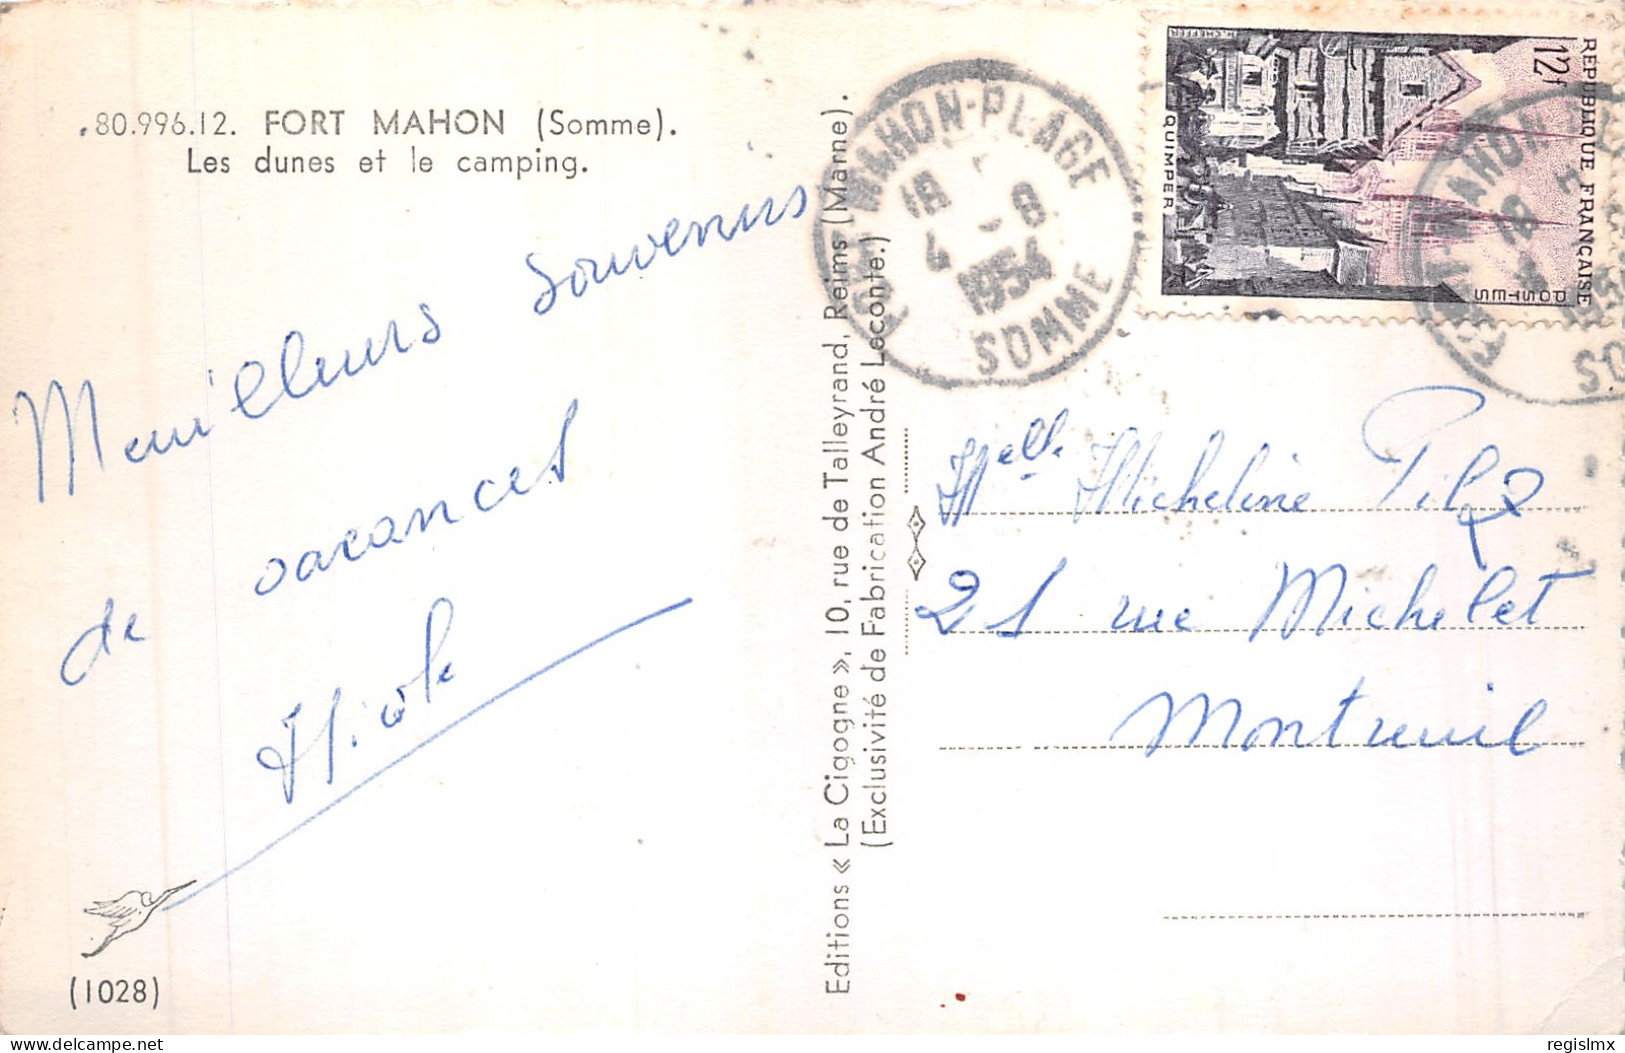 .80.996.12. FORT MAHON (Somme).
Les dunes et le camping.
Meuilleurs souvenirs
de vacances
Nicole
(1028)
Editions « La Cigogne », 10, rue de Talleyrand, Reims (Marne).
(Exclusivité de Fabrication André Leconte.)
FORT MAHON-PLAGE
18 - 8
4
1954
SOMME
REPUBLIQUE FRANÇAISE
12f
POSTES
QUIMPER
Melle Micheline Pilz
21 rue Michelet
Montreuil
delcampe.net
regislmx